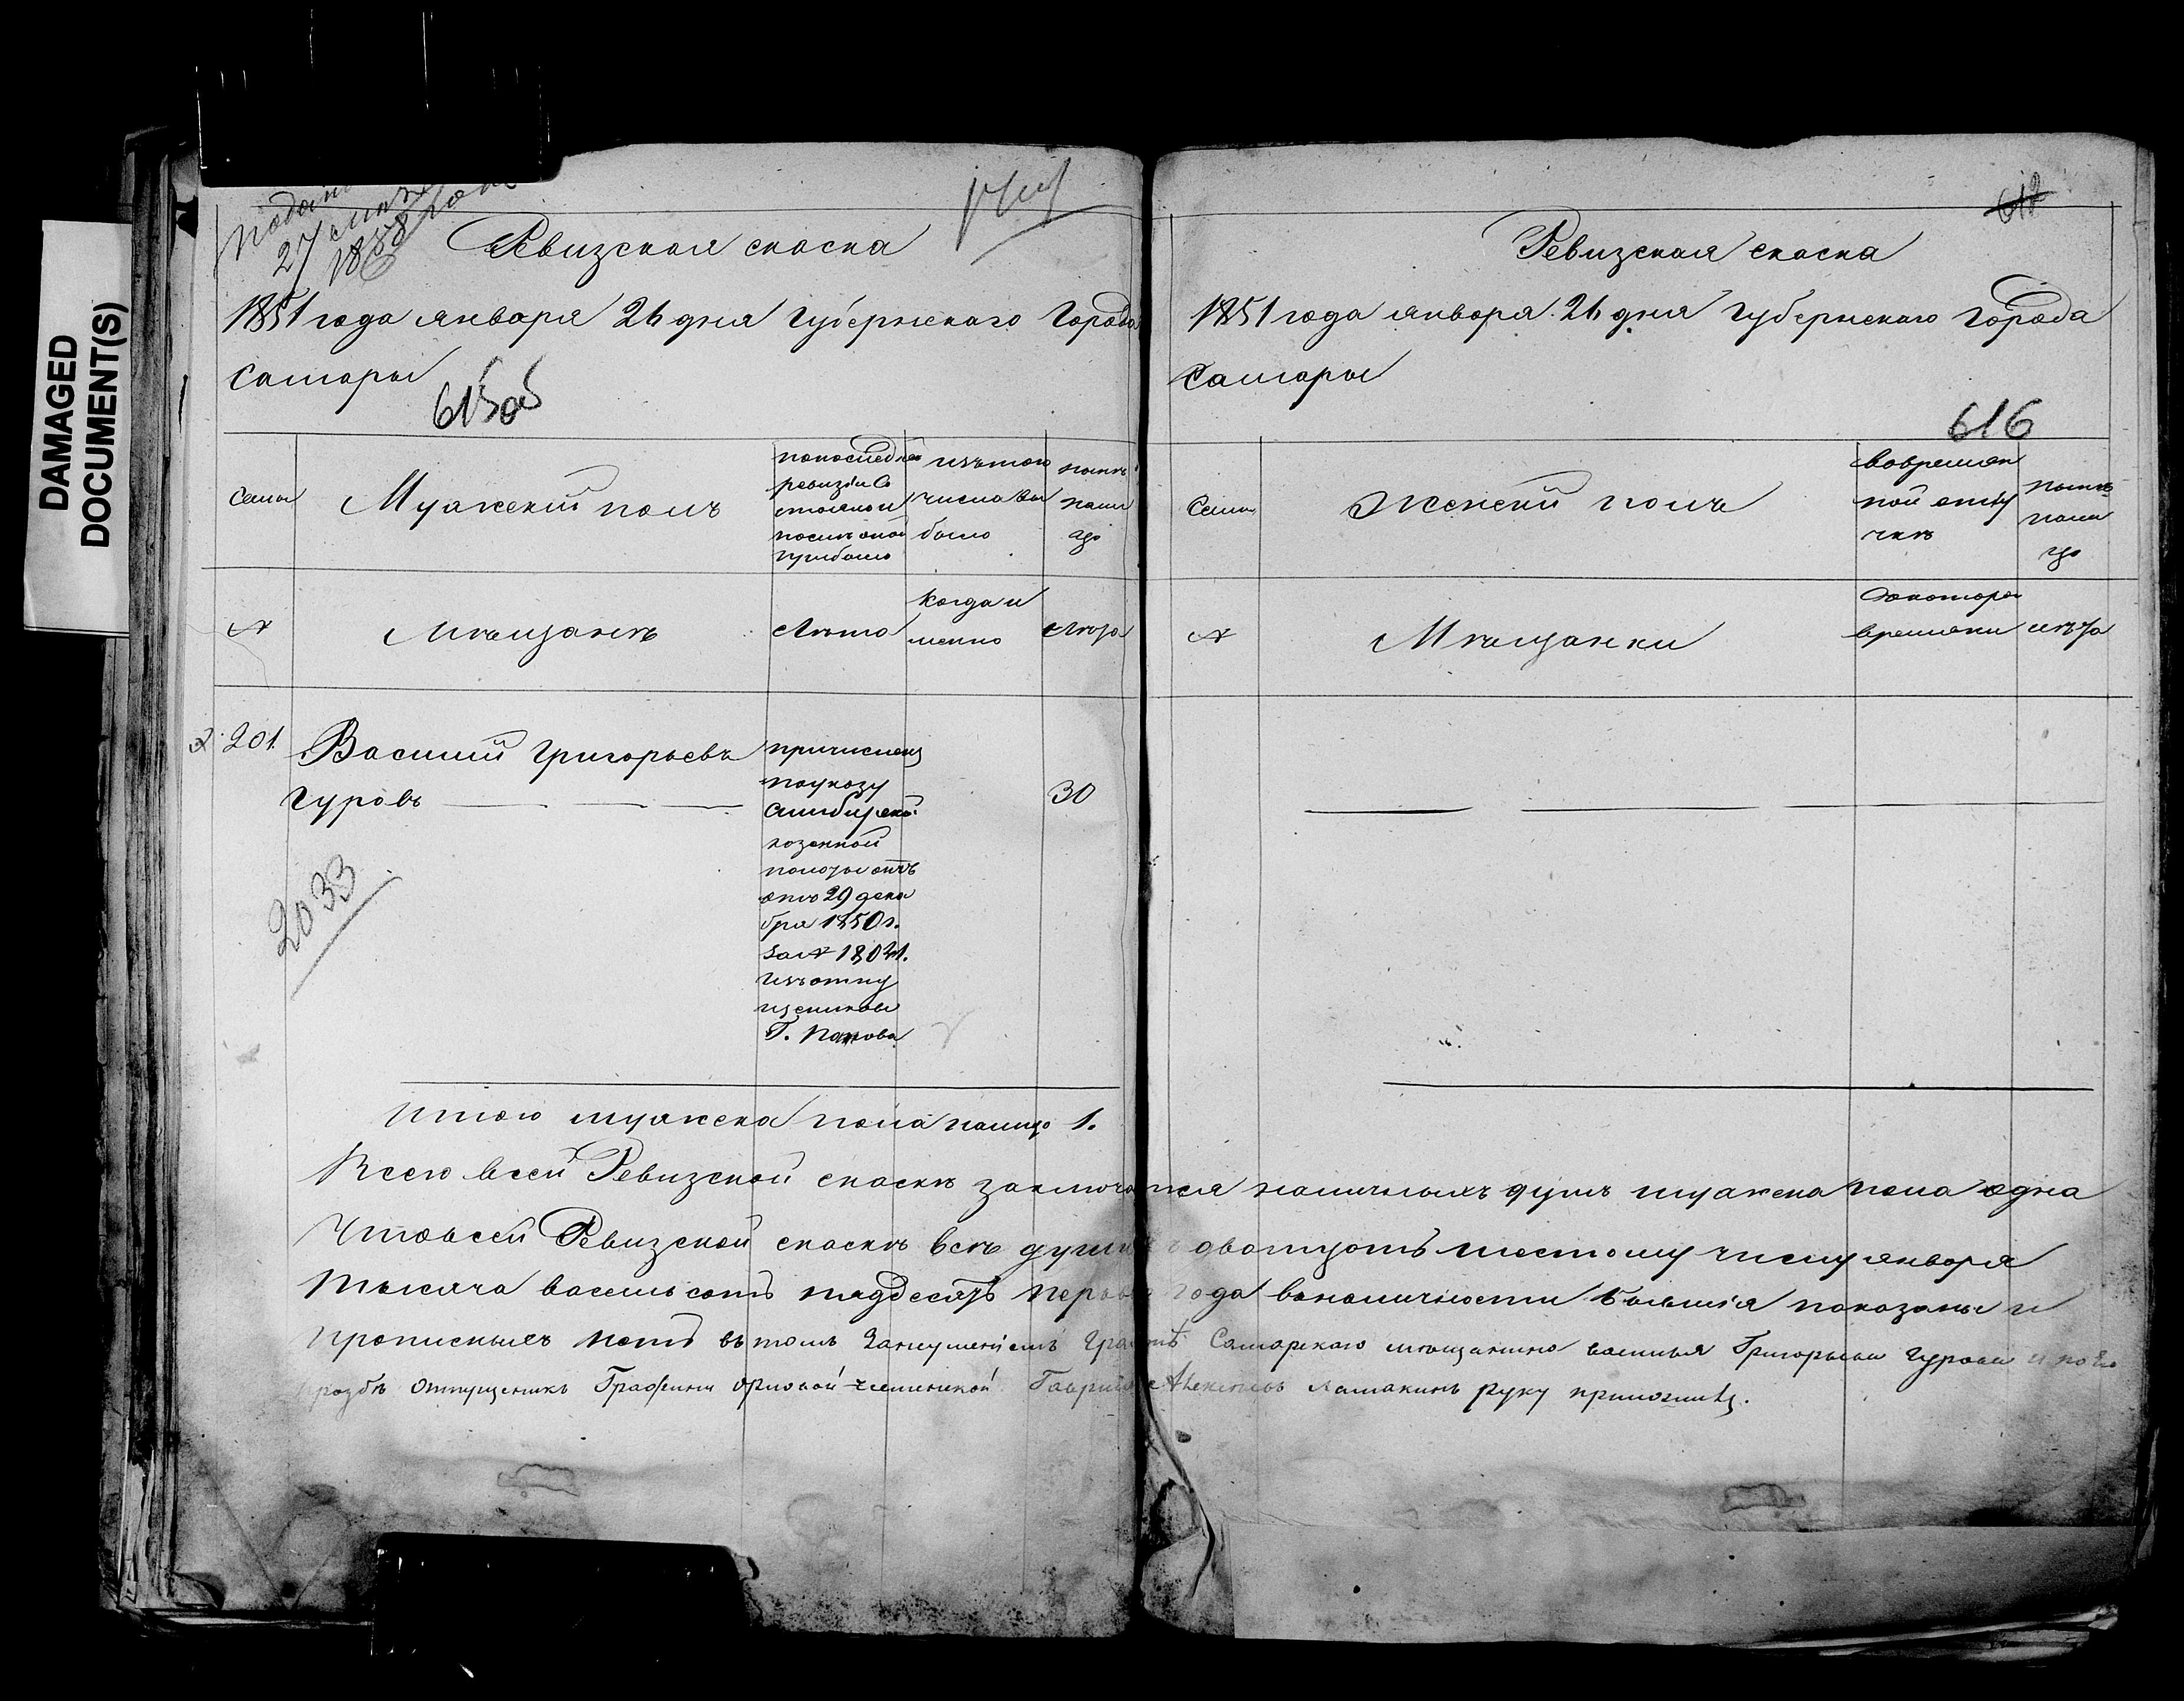 DAMAGED
DOCUMENT(S)
27
Ревизская скаска
1851 года января 26 дня губернскаго города
Самары
615об
семьи
Мужский полъ
попоследней
ревизіи со
стояло и
после оной
прибыло
изътого
числа вы
было
ныне
нали
цо
№
Мещане
лета
когда и
менно
лета
201.
Василий Григорьевъ
Гуровъ
30
причислен
поуказу
Симбирской
козенной
полаты
ото 29 дека
бря 1850 г.
за №
изъотпу
щеников
Г. Панова
2033
Итого мужска пола налицо 1.
Ревизская скаска
1851 года января 26 дня губернскаго города
Самары
616
семьи
Женский полъ
вовремен
ной отлу
чке
ныне
нали
цо
№
Мещанки
скоторого
времени
лета
Всего всей Ревизской скаске заключается наличныхъ душъ мужска пола одна
Чтовсей Ревизской скаске все души к двотцать шестому числу января
тысяча восемьсотъ пядесятъ перваго года вналичности бывшия показаны и
прописныхъ нетъ втомъ Самарскаго мещанина василья Григорьева Гурова
отпущеникъ Графини орловой чесменской Гаврила Алексеевъ Ламакинъ руку приложилъ.